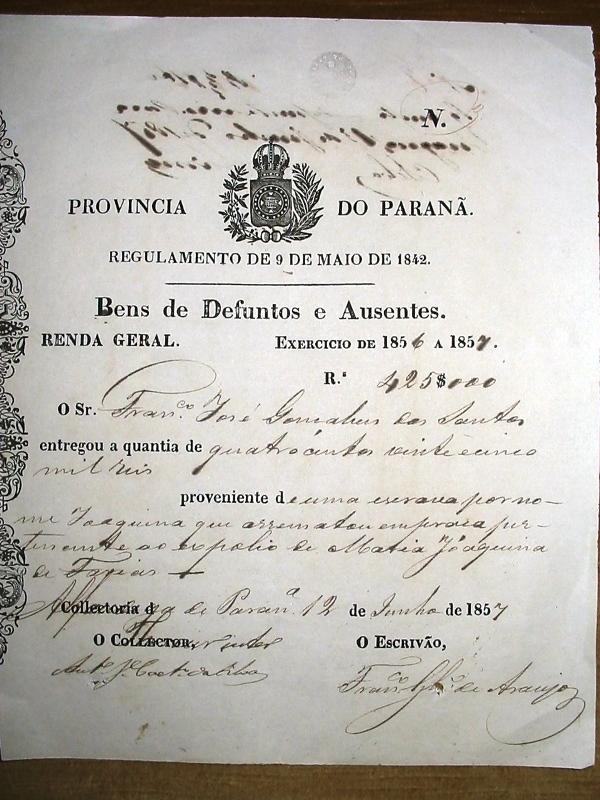 N.
PROVINCIA DO PARANÃ.
REGULAMENTO DE 9 DE MAIO DE 1842.
Bens de Defuntos e Ausentes.
RENDA GERAL. EXERCICIO DE 1856 A 1857.
R.ˢ 425$000
O Sr. Fran.ᶜᵒ José Gonçalves dos Santos
entregou a quantia de quatrocentos vinte e cinco
mil reis
proveniente de uma escrava por no-
me Joaquina que arrematou em praça per-
tencente ao espolio de Maria Joaquina
de Farias
Collectoria d Alfandega de Paran.ᵃ 12 de Junho de 1857
O COLLECTOR, O ESCRIVÃO,
Fran.ᶜᵒ de Araujo